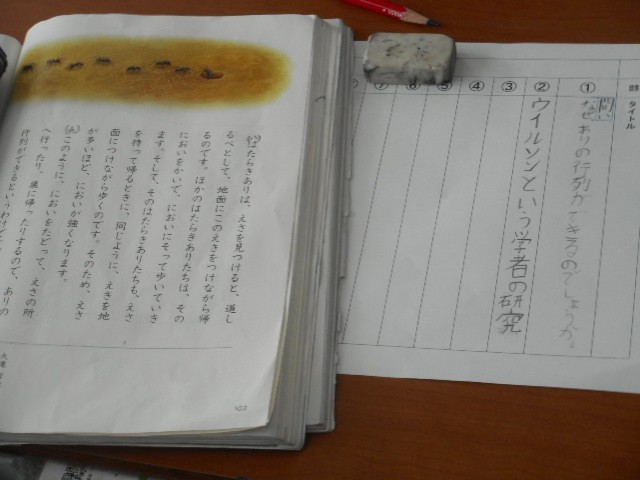 はたらきありは、えさを見つけると、道し
るべとして、地面にこのえきをつけながら帰
るのです。ほかのはたらきありたちは、その
においをかいで、においにそって歩いていき
ます。そして、そのはたらきありたちも、えさ
を持って帰るときに、同じように、えきを地
面につけながら歩くのです。そのため、えさ
が多いほど、においが強くなります。
このように、においをたどって、えさの所
へ行ったり、巣に帰ったりするので、ありの
行列ができるというわけ
タイトル
①
問い
なぜありの行列ができるのでしょうか。
②
ウイルソンという学者の研究
③
④